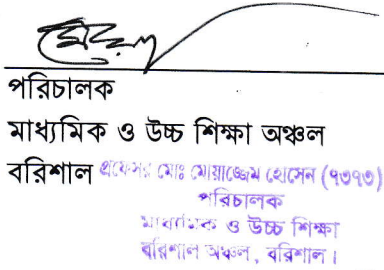 পরিচালক
মাধ্যমিক ও উচ্চ শিক্ষা অঞ্চল
বরিশাল প্রফেসর মোঃ মোয়াজ্জেম হোসেন (৭৩৭৩)
পরিচালক
মাধ্যমিক ও উচ্চ শিক্ষা
বরিশাল অঞ্চল, বরিশাল।